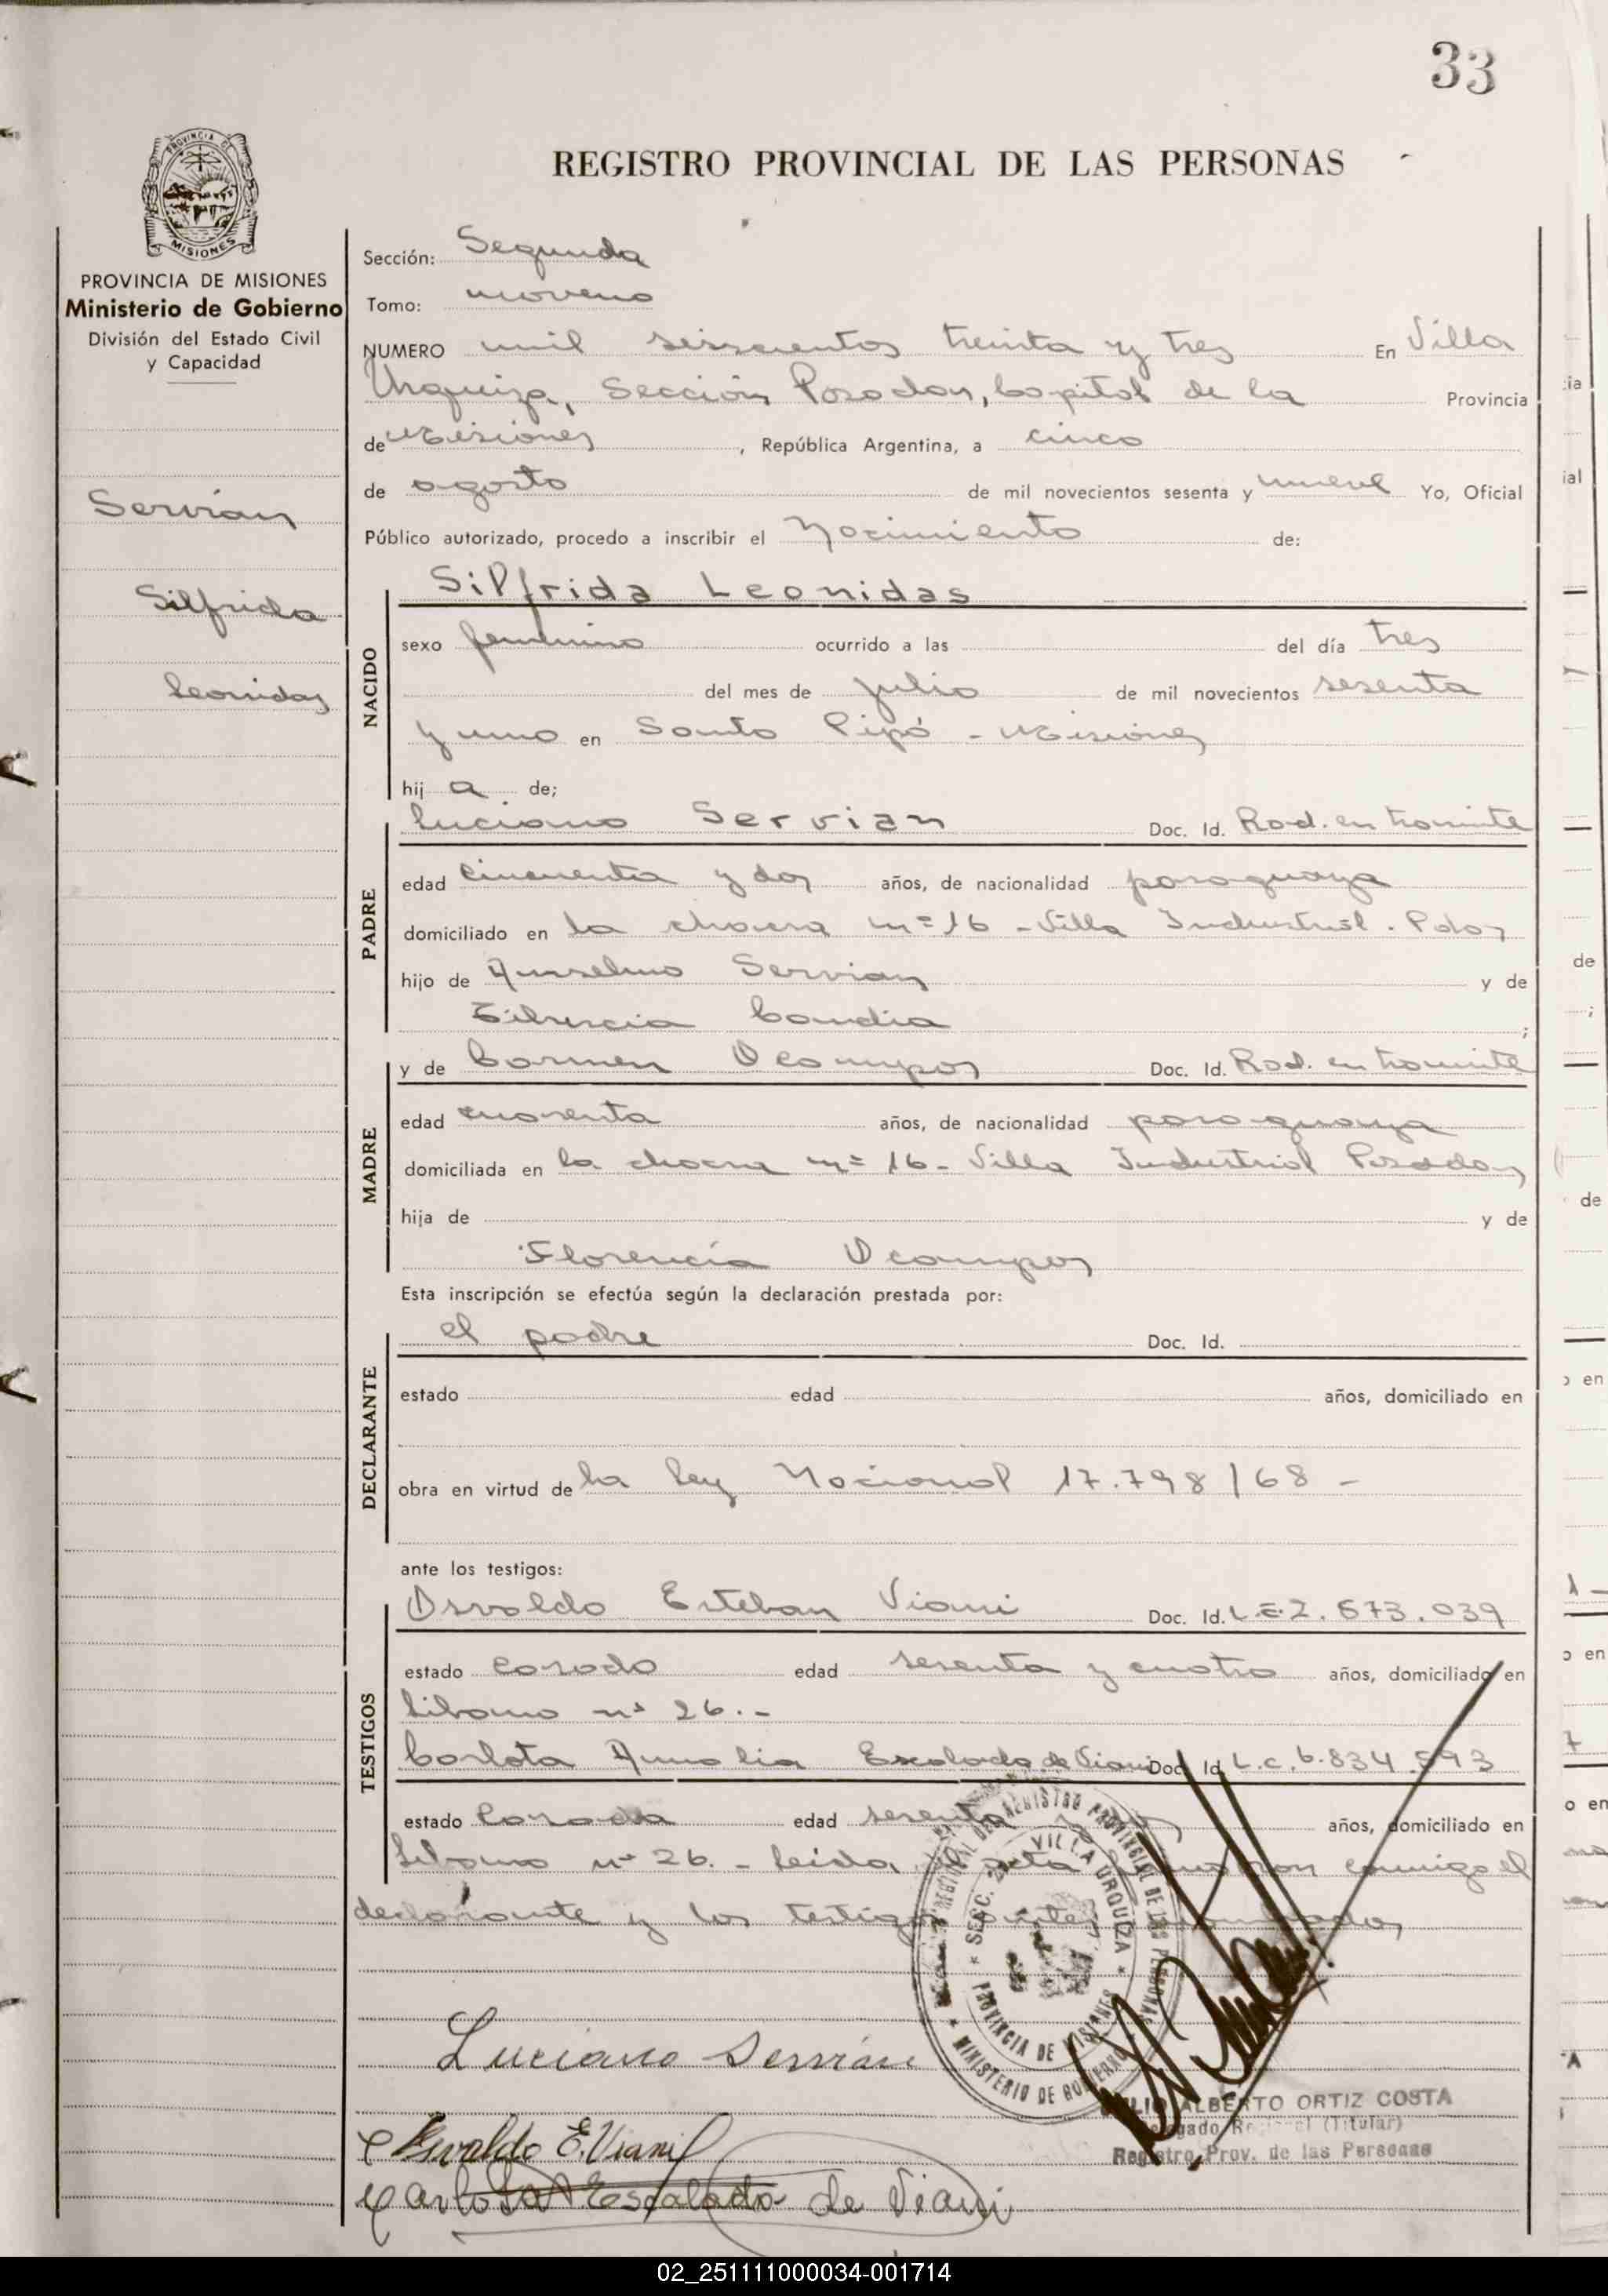 33
REGISTRO PROVINCIAL DE LAS PERSONAS
PROVINCIA DE
MISIONES
PROVINCIA DE MISIONES
Ministerio de Gobierno
División del Estado Civil
y Capacidad
Servian
Silfrida
Leonidas
Sección: Segunda
Tomo: noveno
NUMERO mil seiscientos treinta y tres En Villa
Urquiza, Sección Posadas, Capital de la Provincia
de Misiones, República Argentina, a cinco
de agosto de mil novecientos sesenta y nueve Yo, Oficial
Público autorizado, procedo a inscribir el Nacimiento de:
NACIDO
Silfrida Leonidas
sexo femenino ocurrido a las del día tres
del mes de julio de mil novecientos sesenta
y uno en Santo Pipó - Misiones
hij a de;
PADRE
Luciano Servian Doc. Id. Rad. en tramite
edad cincuenta y dos años, de nacionalidad paraguaya
domiciliado en la chacra nº 16 - Villa Industrial. Pdas
hijo de Anselmo Servian y de
Tiburcia Candia ;
MADRE
y de Carmen Ocampos Doc. Id. Rad. en tramite
edad cuarenta años, de nacionalidad paraguaya
domiciliada en la chacra nº 16 - Villa Industrial Posadas
hija de y de
Florencia Ocampos
Esta inscripción se efectúa según la declaración prestada por:
DECLARANTE
el padre Doc. Id.
estado edad años, domiciliado en
obra en virtud de la ley Nacional 17.798/68 -
ante los testigos:
TESTIGOS
Osvaldo Esteban Viani Doc. Id. L.E. 2.673.039
estado casado edad sesenta y cuatro años, domiciliado en
Libano nº 26.-
Carlota Amalia Escalada de Viani Doc. Id. L.C. 6.834.593
estado casada edad sesenta años, domiciliado en
Libano nº 26. - Leida el acta firman conmigo el
declarante y los testigos antes
SECC. 2ª VILLA URQUIZA
REGISTRO PROVINCIAL DE LAS PERSONAS
PROVINCIA DE MISIONES
MINISTERIO DE GOBIERNO
Luciano Servián
Osvaldo E. Viani
Carlota A Escalada de Viani
JULIO ALBERTO ORTIZ COSTA
Delegado Regional (Titular)
Registro Prov. de las Personas
02_251111000034-001714